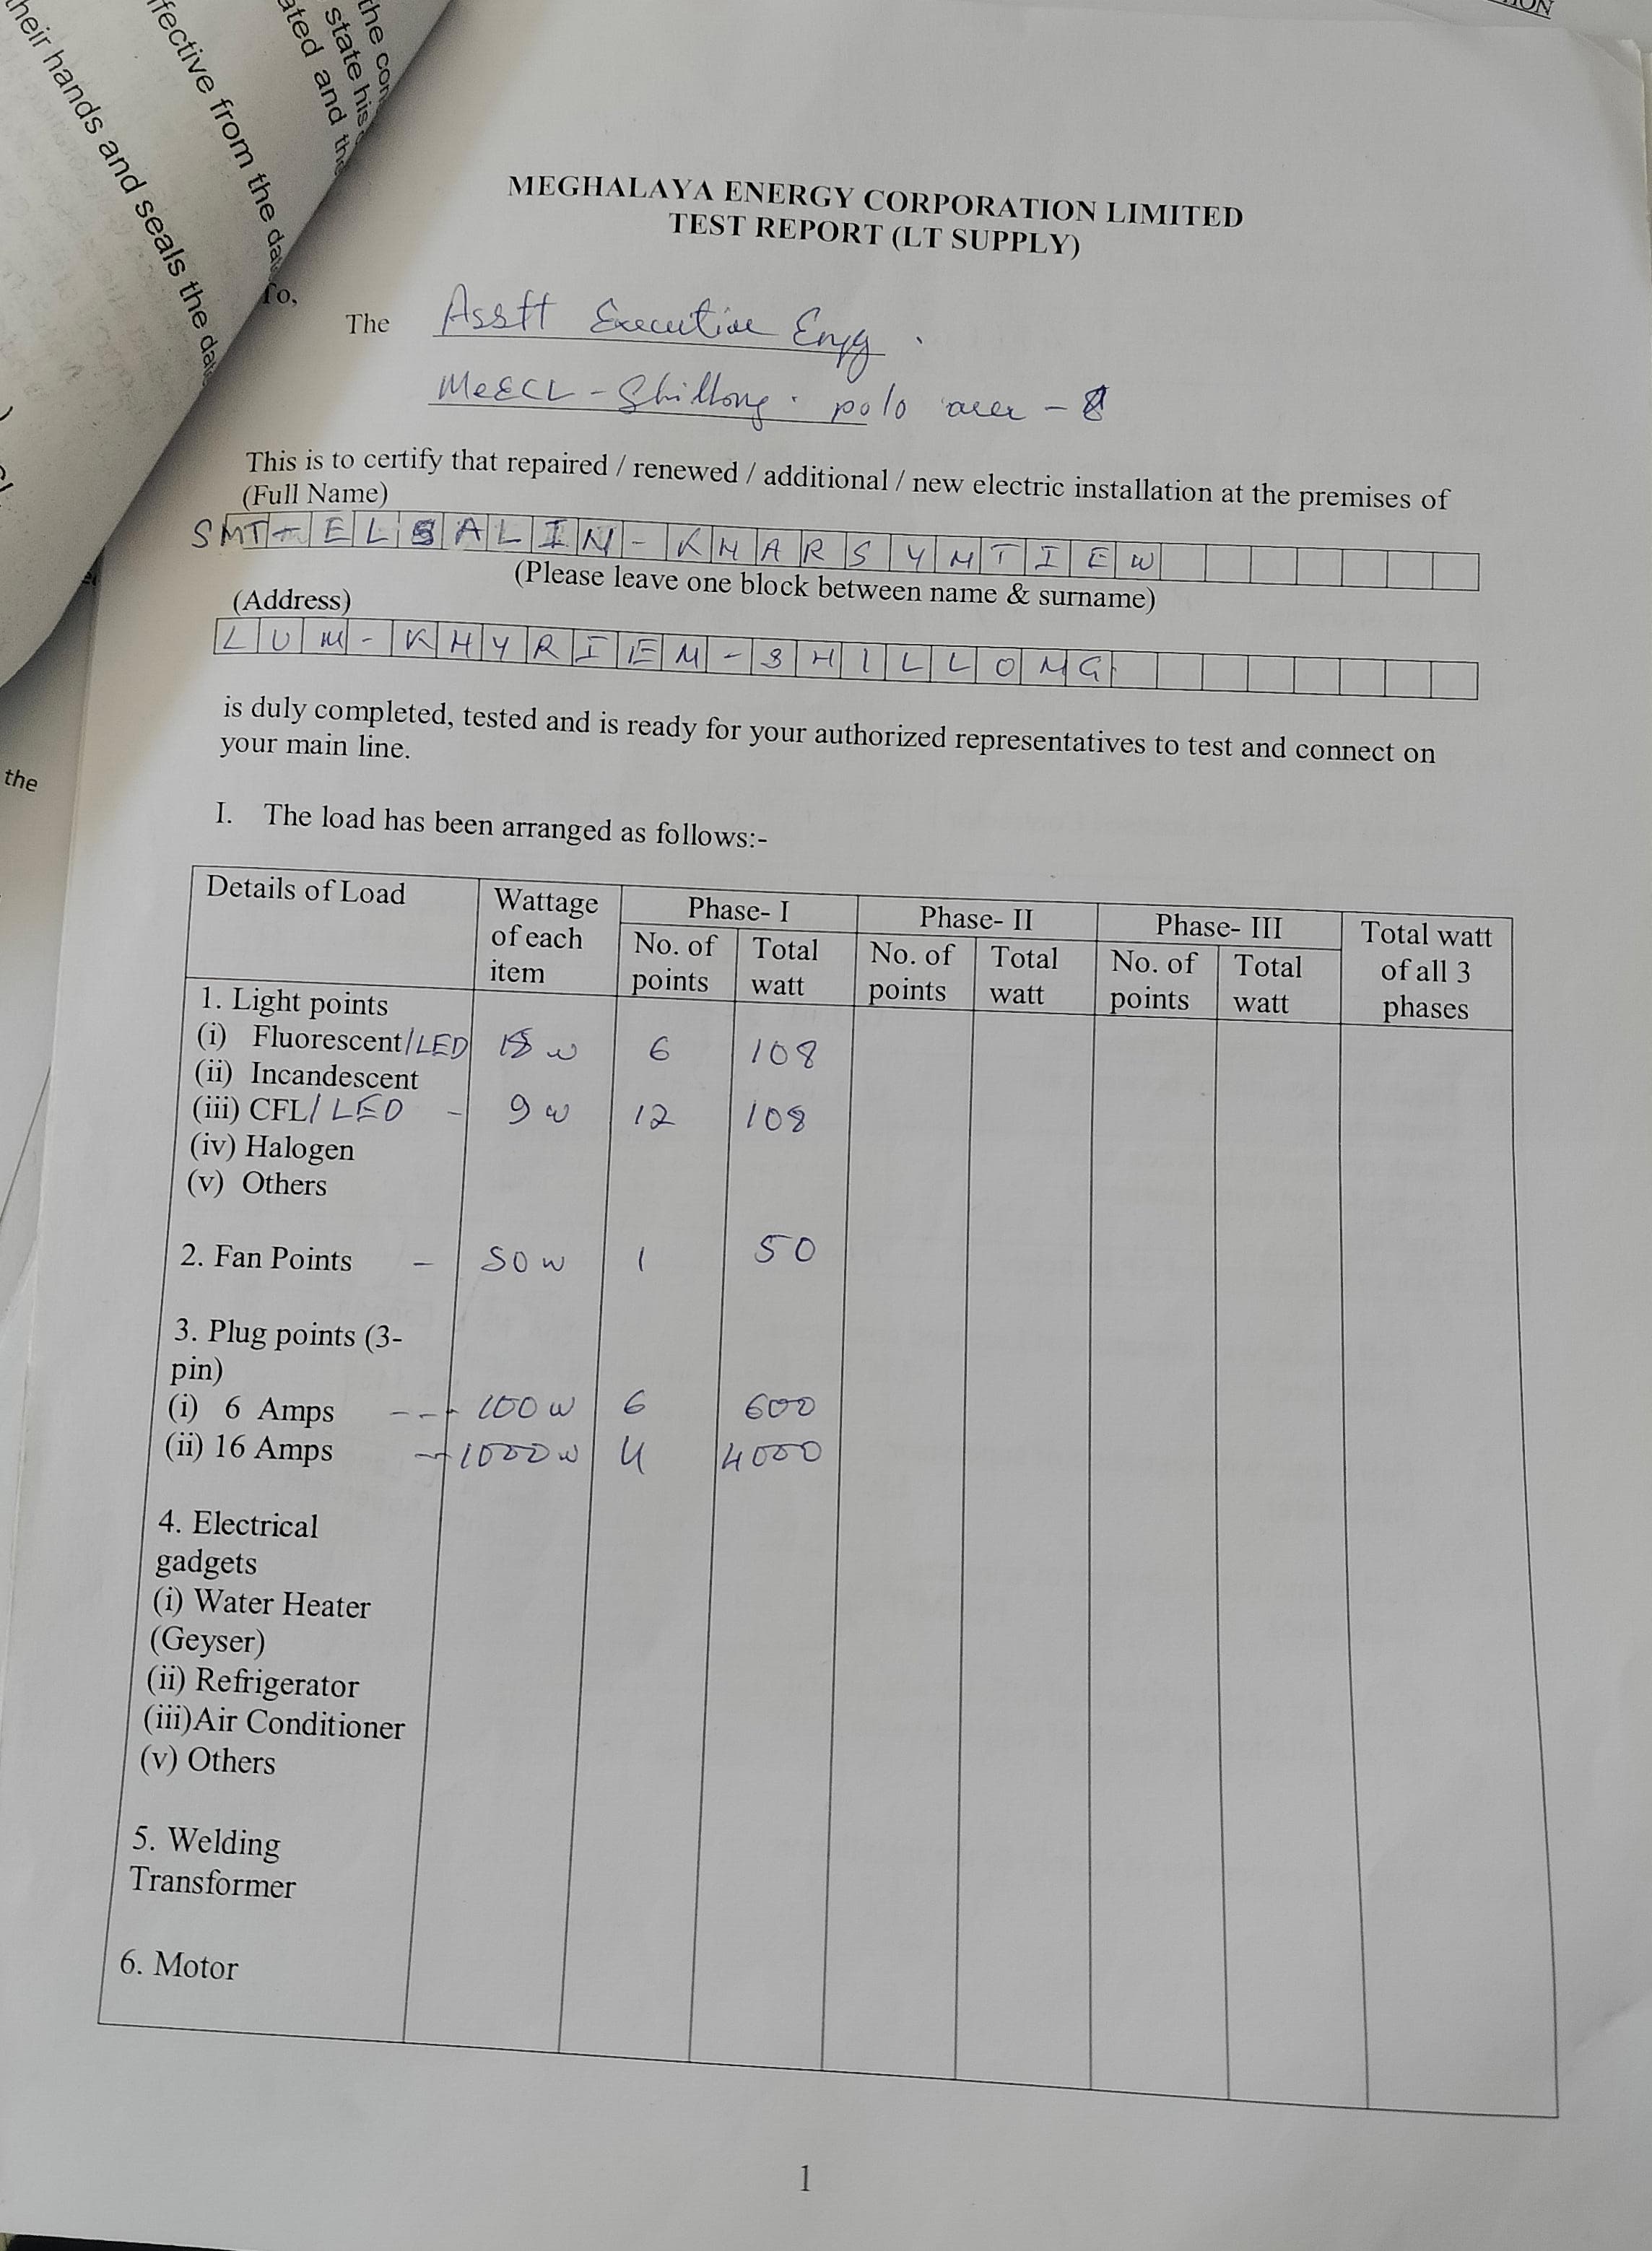 the con
state his
ated and the
ffective from the da
their hands and seals the da
the
MEGHALAYA ENERGY CORPORATION LIMITED
TEST REPORT (LT SUPPLY)
To,
The Asstt Executive Eng.
MeECL - Shillong. polo area -
This is to certify that repaired / renewed / additional / new electric installation at the premises of
(Full Name)
SMT - ELSALIN - KHARSYNTIEW
(Please leave one block between name & surname)
(Address)
LUM - KHYRIEM - SHILLONG
is duly completed, tested and is ready for your authorized representatives to test and connect on
your main line.
I. The load has been arranged as follows:-
Details of Load Wattage of each item Phase- I Phase- II Phase- III Total watt of all 3 phases
No. of points Total watt No. of points Total watt No. of points Total watt
1. Light points
(i) Fluorescent/LED 18 w 6 108
(ii) Incandescent
(iii) CFL/LED - 9 w 12 108
(iv) Halogen
(v) Others
2. Fan Points - 50 w 1 50
3. Plug points (3-
pin)
(i) 6 Amps --- 100 w 6 600
(ii) 16 Amps -- 1000 w 4 4000
4. Electrical
gadgets
(i) Water Heater
(Geyser)
(ii) Refrigerator
(iii)Air Conditioner
(v) Others
5. Welding
Transformer
6. Motor
1